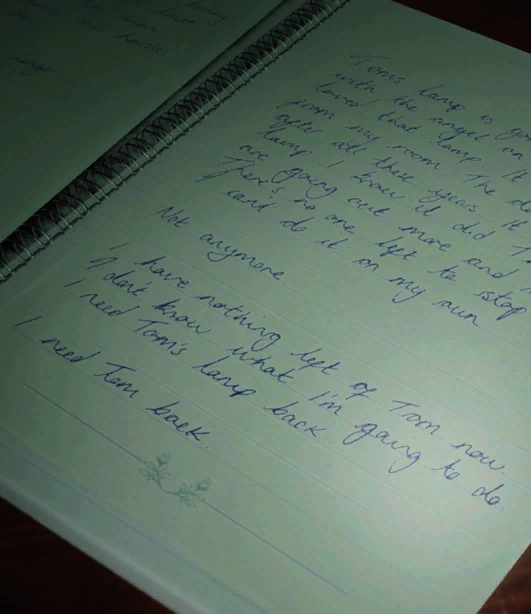 Tom's lamp is
with the angel on
loved that lamp It
from my room The
after all these years It
lamp I know it did
me going out more and
There's no one left to stop
can't do it on my own
Not anymore.
I have nothing left of Tom now.
I don't know what I'm going to do.
I need Tom's lamp back
I need Tom back.